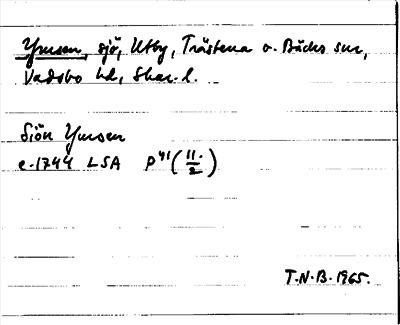 Ymsen, sjö, Utby, Trästena o. Bäcks snr,
Vadsbo hd, Skar. l.
Siön Ymsen
c. 1744 LSA P 41 (11/2)
T.N.B. 1965.